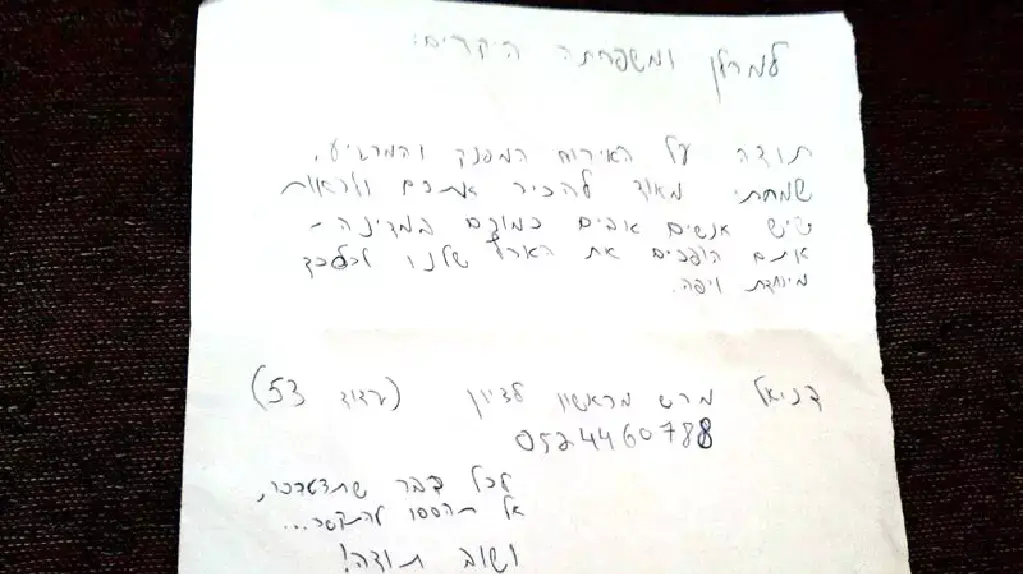 למרלן ומשפחתה היקרים:
תודה על האירוח המפנק והמרגיע.
שמחתי מאוד להכיר אתכם ולראות
שיש אנשים טובים כמוכם במדינה -
אתם הופכים את הארץ שלנו לכל כך
מיוחדת ויפה.
דניאל מרש מראשון לציון (גדוד 53)
0524460788
לכל דבר שתצטרכו,
אל תהססו להתקשר...
ושוב תודה!